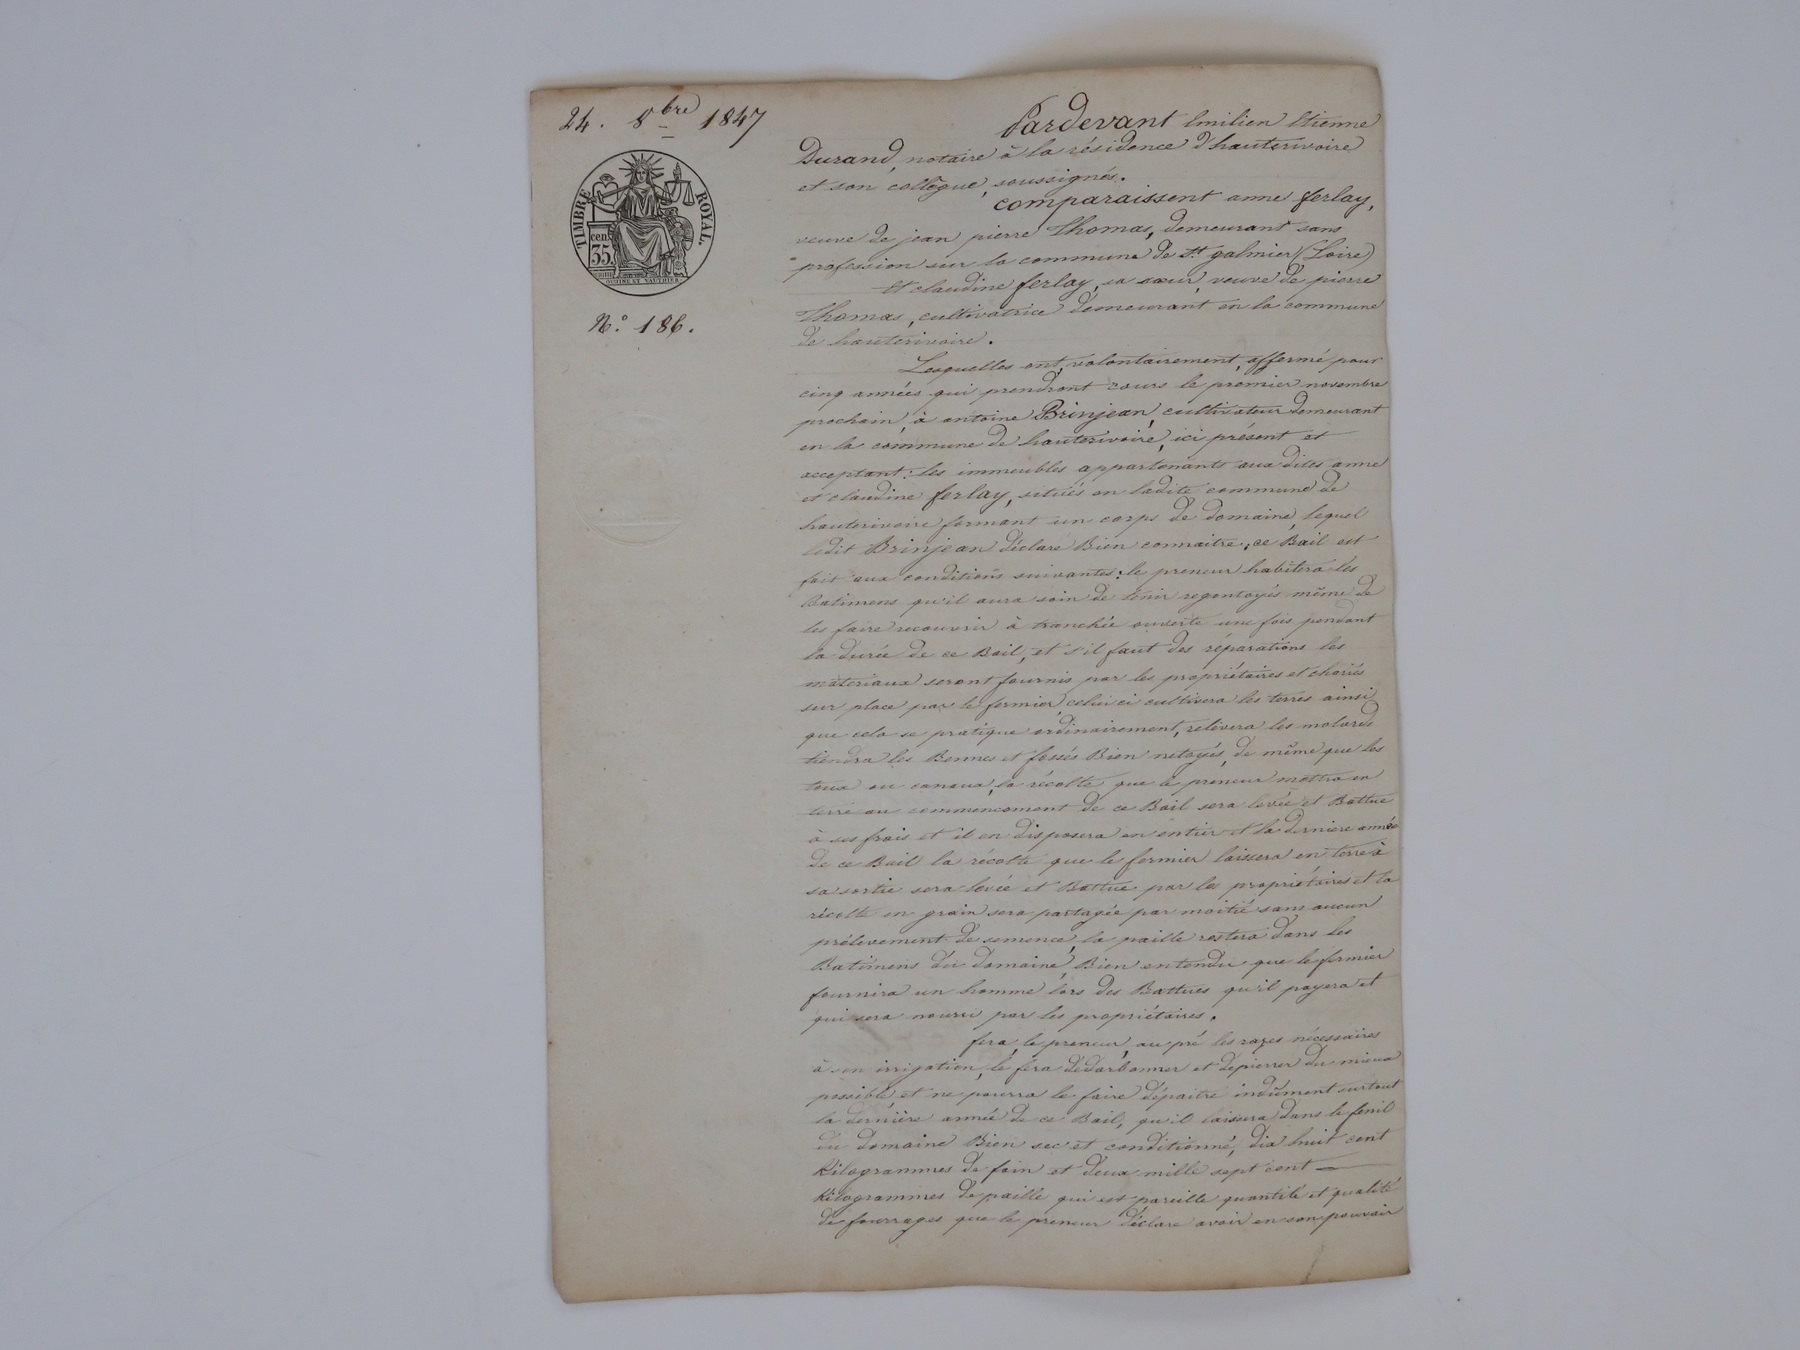 24. 8bre 1847
TIMBRE ROYAL.
cen. 35.
N.° 186.
Pardevant émilien étienne
Durand, notaire à la résidence d'hauterivoire
et son collègue, soussignés.
comparaissent anne ferlay,
veuve de jean pierre Thomas, demeurant sans
profession sur la commune de st. galmier (Loire)
Et claudine ferlay, sa sœur, veuve de pierre
Thomas, cultivatrice demeurant en la commune
de hauterivoire.
Lesquelles ont, volontairement, affermé pour
cinq années qui prendront cours le premier novembre
prochain, à antoine Brinjean, cultivateur demeurant
en la commune de hauterivoire, ici présent et
acceptant: les immeubles appartenants aux dites anne
et claudine ferlay, situés en ladite commune de
hauterivoire formant un corps de domaine, lequel
ledit Brinjean déclare Bien connaitre; ce Bail est
fait aux conditions suivantes: le preneur habitera les
Batimens qu'il aura soin de tenir regoutoyés même de
les faire recouvrir à tranchée ouverte une fois pendant
la durée de ce Bail, et s'il faut des réparations les
materiaux seront fournis par les propriétaires et chariés
sur place par le fermier, celui ci cultivera les terres ainsi
que cela se pratique ordinairement, relèvera les molards
tiendra les Bennes et fossés Bien netoyés, de même que les
toux ou canaux, la récolte que le preneur mettra en
terre au commencement de ce Bail sera levée et Battue
à ses frais et il en disposera en entier et la derniere année
de ce Bail la récolte que le fermier laissera en terre à
sa sortie sera levée et Battue par les propriétaires et la
récolte en grain sera partagée par moitié sans aucun
prélevement de semence, la paille restera dans les
Batimens du domaine, Bien entendu que le fermier
fournira un homme lors des Battues qu'il payera et
qui sera nourri par les propriétaires.
fera, le preneur, au pré les razes nécessaires
à son irrigation, le fera dédarbonner et dépierrer du mieux
possible, et ne pourra le faire dépaitre indûment surtout
la dernière année de ce Bail, qu'il laissera dans le fenil
du domaine Bien sec et conditionné, dix huit cent
Kilogrammes de foin et deux mille sept cent
Kilogrammes de paille qui est pareille quantité et qualité
de fourrages que le preneur déclare avoir en son pouvoir